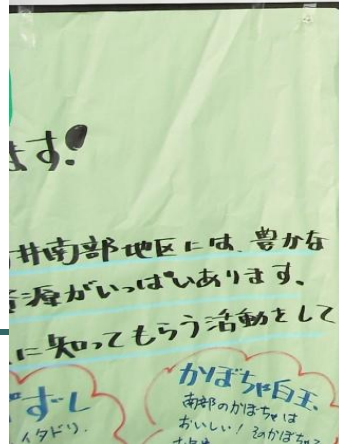 ます!
井南部地区には、豊かな
資源がいっぱいあります。
に知ってもらう活動をして
ずし
イタドリ、
かぼちゃ白玉
南部のかぼちゃは
おいしい!そのかぼちゃ